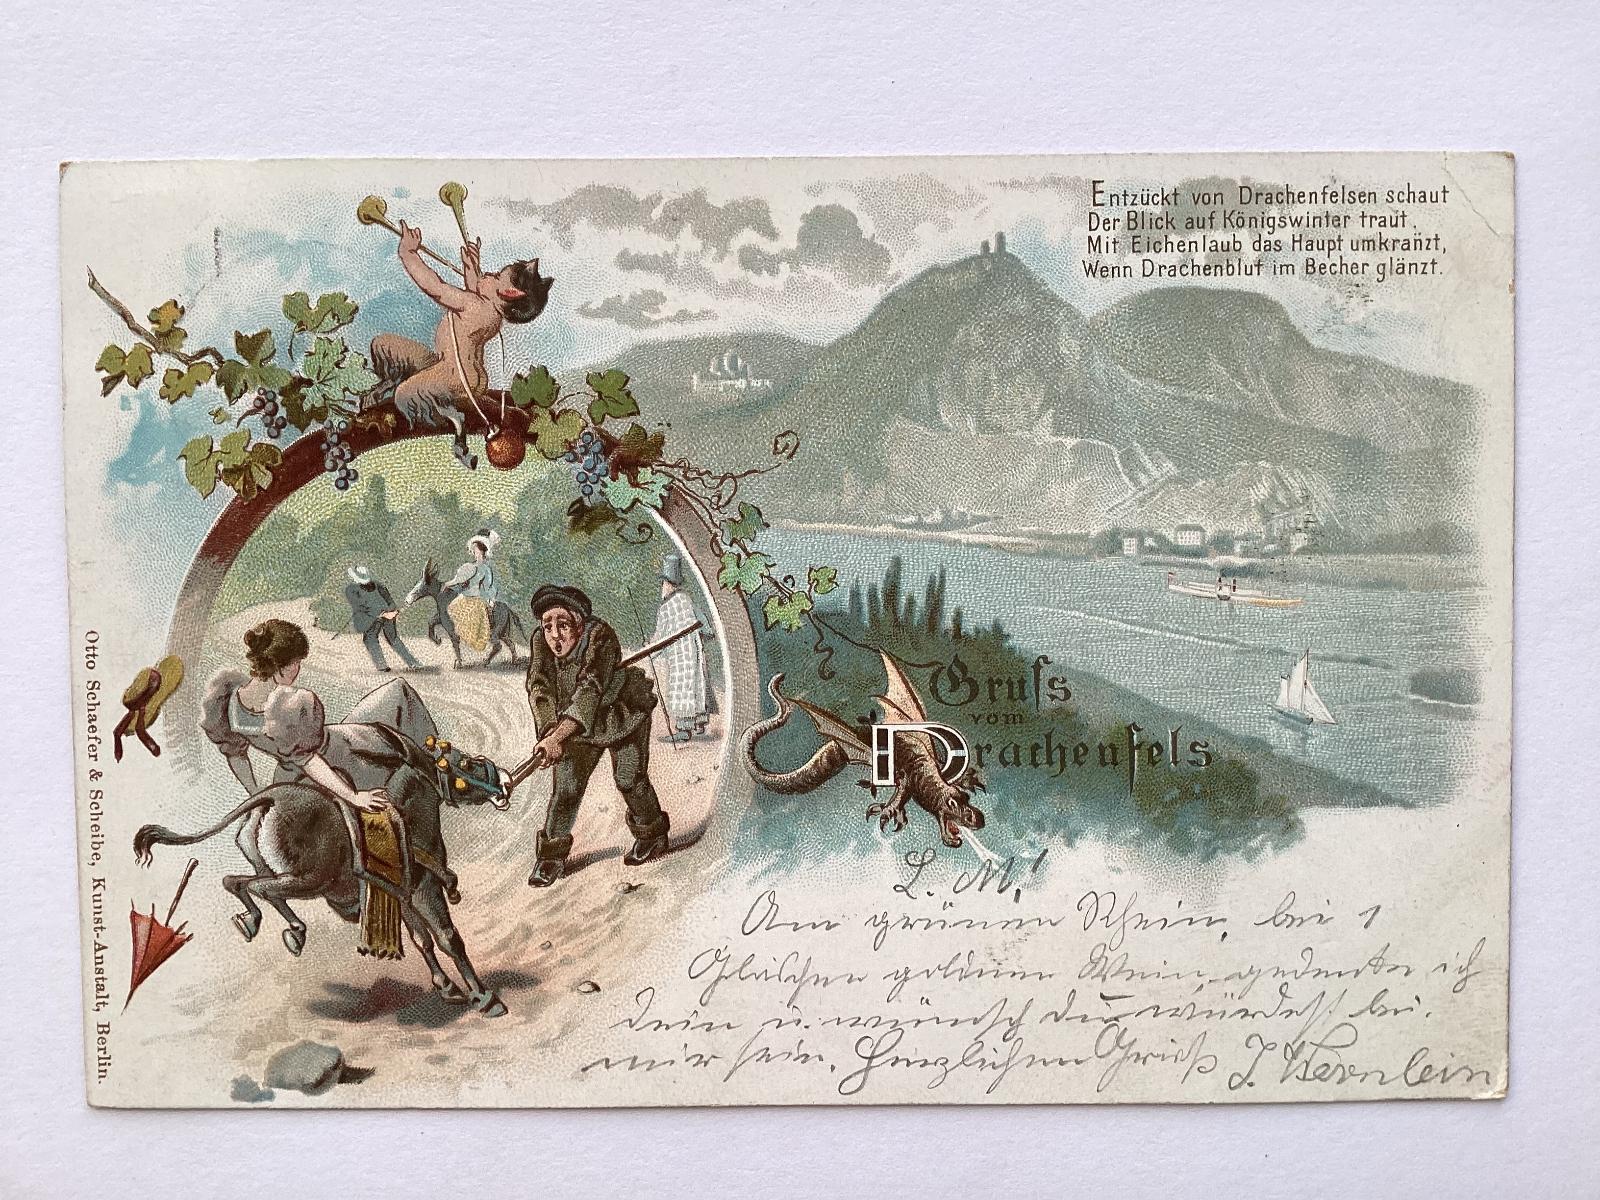 Entzückt von Drachenfelsen schaut
Der Blick auf Königswinter traut.
Mit Eichenlaub das Haupt umkränzt,
Wenn Drachenblut im Becher glänzt.
Gruſs
vom
Drachenfels
L. M.!
Am grünen Rhein, bei 1
Gläschen goldnen Wein, gedenke ich
dein u. wünsch du würdest bei
mir sein. Herzlichen Gruß J.
Otto Schaefer & Scheibe, Kunst-Anstalt, Berlin.